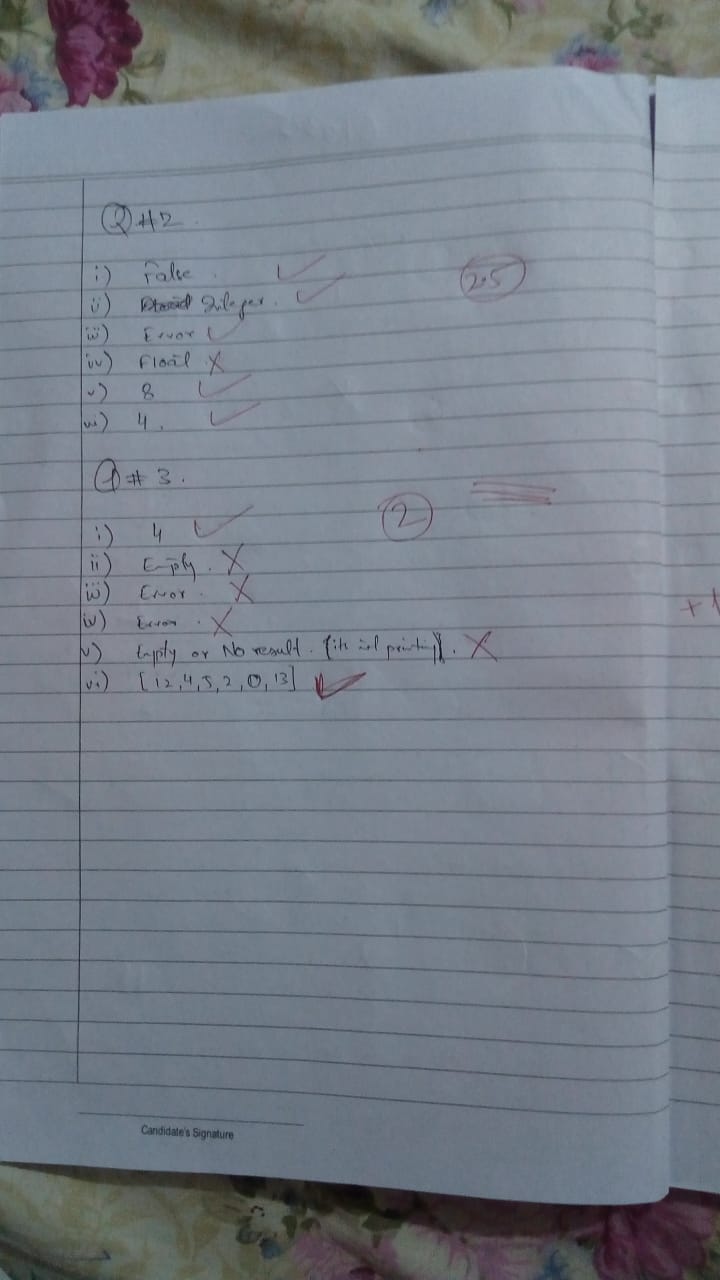 Q#2.
i) False.
2.5
ii) Integer.
iii) Error
iv) Float
v) 8
vi) 4.
Q#3.
i) 4
2
ii) Empty.
iii) Error.
iv) Error.
+1
v) Empty or No result. [its not printing].
vi) [12,4,5,2,0,13]
Candidate's Signature